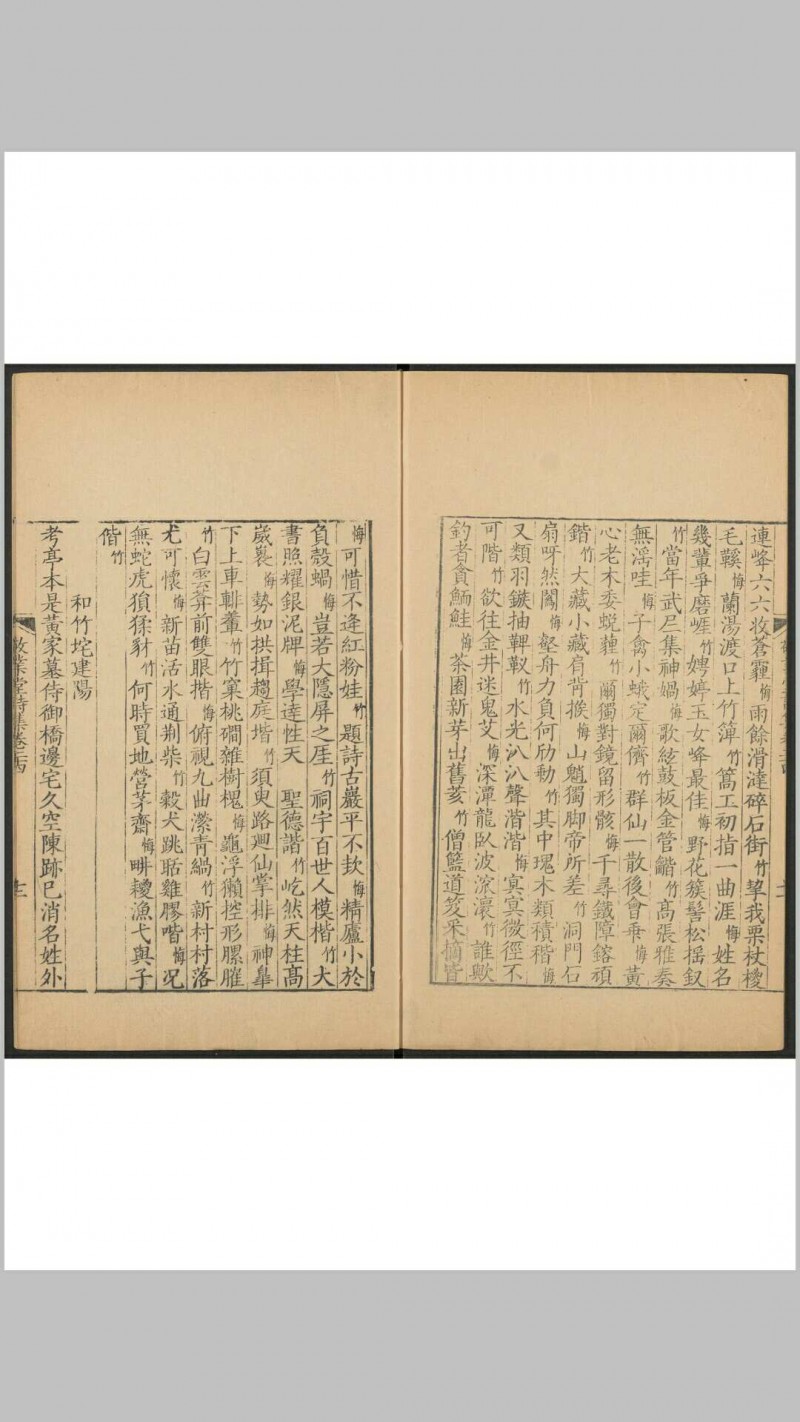 連峰六六收蒼霾悔雨餘滑澾碎石街竹挈我栗杖椶
毛鞵悔蘭湯渡口上竹簰竹篙工初指一曲涯悔姓名
幾輩爭磨崕竹娉婷玉女峰最佳悔野花簇髻松揺釵
竹當年武夷集神媧悔歌絃鼓板金管龤竹髙張雅奏
無淫哇悔子禽小蛾定爾儕竹群仙一散後會乗悔黃
心老木委蛻薶竹爾獨對鏡留形骸悔千尋鐵障鎔頑
鍇竹大藏小藏肩背揆悔山魈獨脚帝所差竹洞門石
扇呀然闔悔壑舟力負何劤勭竹其中瑰木類積稭悔
又類羽鏃抽鞞靫竹水光汃汃聲湝湝悔㝠㝠微徑不
可階竹欲往金井迷鬼艾悔深潭龍臥波滾瀼竹誰歟
釣者貪鮞鮭悔茶園新芽出舊荄竹僧籃道笈采摘皆
悔可惜不逢紅粉娃竹題詩古巖平不欹悔精廬小於
負殼蝸悔豈若大隱屏之厓竹祠宇百世人模楷竹大
書照耀銀泥牌悔學逹性天 聖德諧竹屹然天柱髙
嵗裹悔勢如拱揖趨庭堦竹須臾路迴仙掌排悔神臯
下上車輫䡝竹竹窠桃磵雜樹槐悔龜浮獺控形腜膗
竹白雲葊前雙眼揩悔俯視九曲瀠青緺竹新村村落
尤可懷悔新苗活水通荆柴竹㲉犬跳䀨雞膠喈悔况
無蛇虎狽猱豺竹何時買地營茅齋悔畊耰漁弋與子
偕竹
和竹垞建陽
考亭本是黃家墓侍御橋邊宅久空陳跡已消名姓外
敬業堂詩集卷二十四
十二